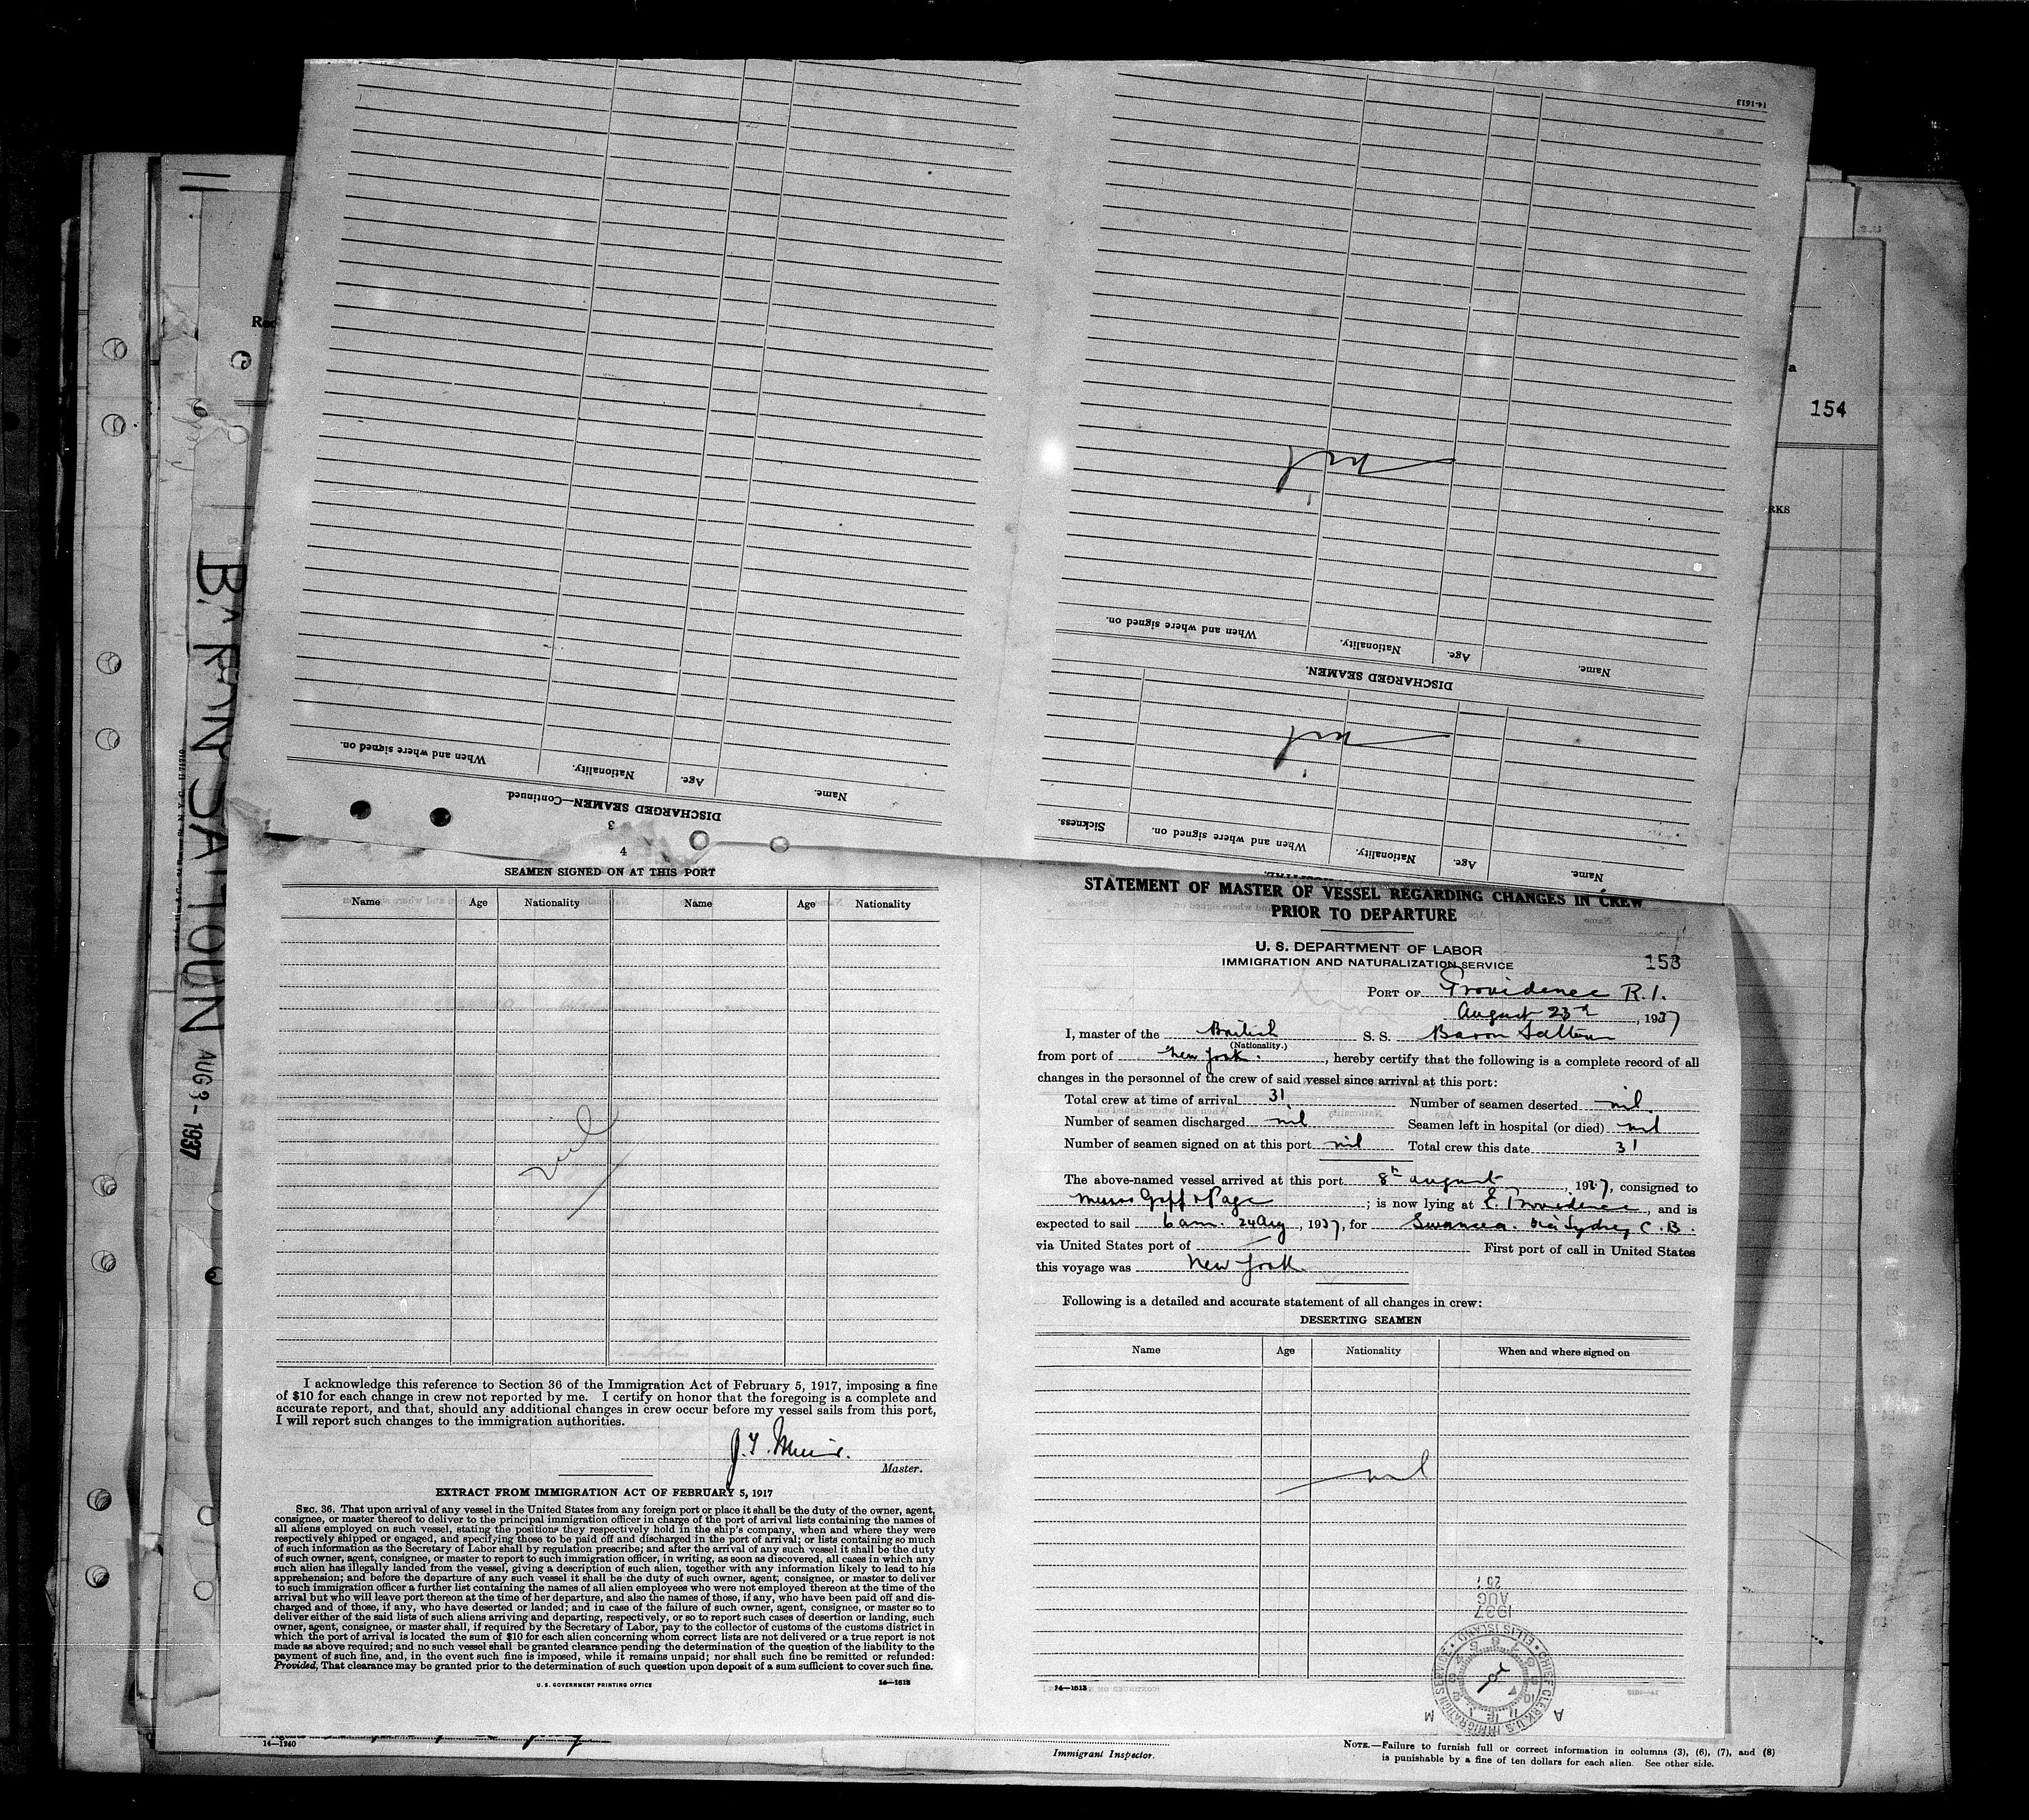 14-1613
nil
When and where signed on.
Nationality.
Age.
Name.
DISCHARGED SEAMEN.
nil
Sickness.
When and where signed on.
Nationality.
Age.
Name.
When and where signed on.
Nationality.
Age.
Name.
DISCHARGED SEAMEN—Continued
3
154
a
RKS
Rec
11
BARON SALTOUN AUG 3-1937
4
SEAMEN SIGNED ON AT THIS PORT
Name Age Nationality Name Age Nationality
nil
I acknowledge this reference to Section 36 of the Immigration Act of February 5, 1917, imposing a fine
of $10 for each change in crew not reported by me. I certify on honor that the foregoing is a complete and
accurate report, and that, should any additional changes in crew occur before my vessel sails from this port,
I will report such changes to the immigration authorities.
Master.
EXTRACT FROM IMMIGRATION ACT OF FEBRUARY 5, 1917
SEC. 36. That upon arrival of any vessel in the United States from any foreign port or place it shall be the duty of the owner, agent,
consignee, or master thereof to deliver to the principal immigration officer in charge of the port of arrival lists containing the names of
all aliens employed on such vessel, stating the positions they respectively hold in the ship's company, when and where they were
respectively shipped or engaged, and specifying those to be paid off and discharged in the port of arrival; or lists containing so much
of such information as the Secretary of Labor shall by regulation prescribe; and after the arrival of any such vessel it shall be the duty
of such owner, agent, consignee, or master to report to such immigration officer, in writing, as soon as discovered, all cases in which any
such alien has illegally landed from the vessel, giving a description of such alien, together with any information likely to lead to his
apprehension; and before the departure of any such vessel it shall be the duty of such owner, agent, consignee, or master to deliver
to such immigration officer a further list containing the names of all alien employees who were not employed thereon at the time of the
arrival but who will leave port thereon at the time of her departure, and also the names of those, if any, who have been paid off and dis-
charged and of those, if any, who have deserted or landed; and in case of the failure of such owner, agent, consignee, or master so to
deliver either of the said lists of such aliens arriving and departing, respectively, or so to report such cases of desertion or landing, such
owner, agent, consignee, or master shall, if required by the Secretary of Labor, pay to the collector of customs of the customs district in
which the port of arrival is located the sum of $10 for each alien concerning whom correct lists are not delivered or a true report is not
made as above required; and no such vessel shall be granted clearance pending the determination of the question of the liability to the
payment of such fine, and, in the event such fine is imposed, while it remains unpaid; nor shall such fine be remitted or refunded:
Provided, That clearance may be granted prior to the determination of such question upon deposit of a sum sufficient to cover such fine.
U. S. GOVERNMENT PRINTING OFFICE 14—1613
STATEMENT OF MASTER OF VESSEL REGARDING CHANGES IN CREW
PRIOR TO DEPARTURE
U. S. DEPARTMENT OF LABOR
IMMIGRATION AND NATURALIZATION SERVICE
153
PORT OF Providence R.I.
August 23rd, 1937
I, master of the British S. S. Baron Saltoun
(Nationality.)
from port of New York., hereby certify that the following is a complete record of all
changes in the personnel of the crew of said vessel since arrival at this port:
Total crew at time of arrival 31 Number of seamen deserted nil
Number of seamen discharged nil Seamen left in hospital (or died) nil
Number of seamen signed on at this port nil Total crew this date 31
The above-named vessel arrived at this port 8th august, 1937, consigned to
Messrs Goff & Page; is now lying at E. Providence, and is
expected to sail 6 am. 24 Aug, 1937, for Swansea. via Sydney C.B.
via United States port of — First port of call in United States
this voyage was New York
Following is a detailed and accurate statement of all changes in crew:
DESERTING SEAMEN
Name Age Nationality When and where signed on
nil
1937
AUG
CHIEF CLERK, U.S. IMMIGRATION SERVICE • ELLIS ISLAND •
A M
14—1613
14—1240
Immigrant Inspector.
NOTE.—Failure to furnish full or correct information in columns (3), (6), (7), and (8)
is punishable by a fine of ten dollars for each alien. See other side.